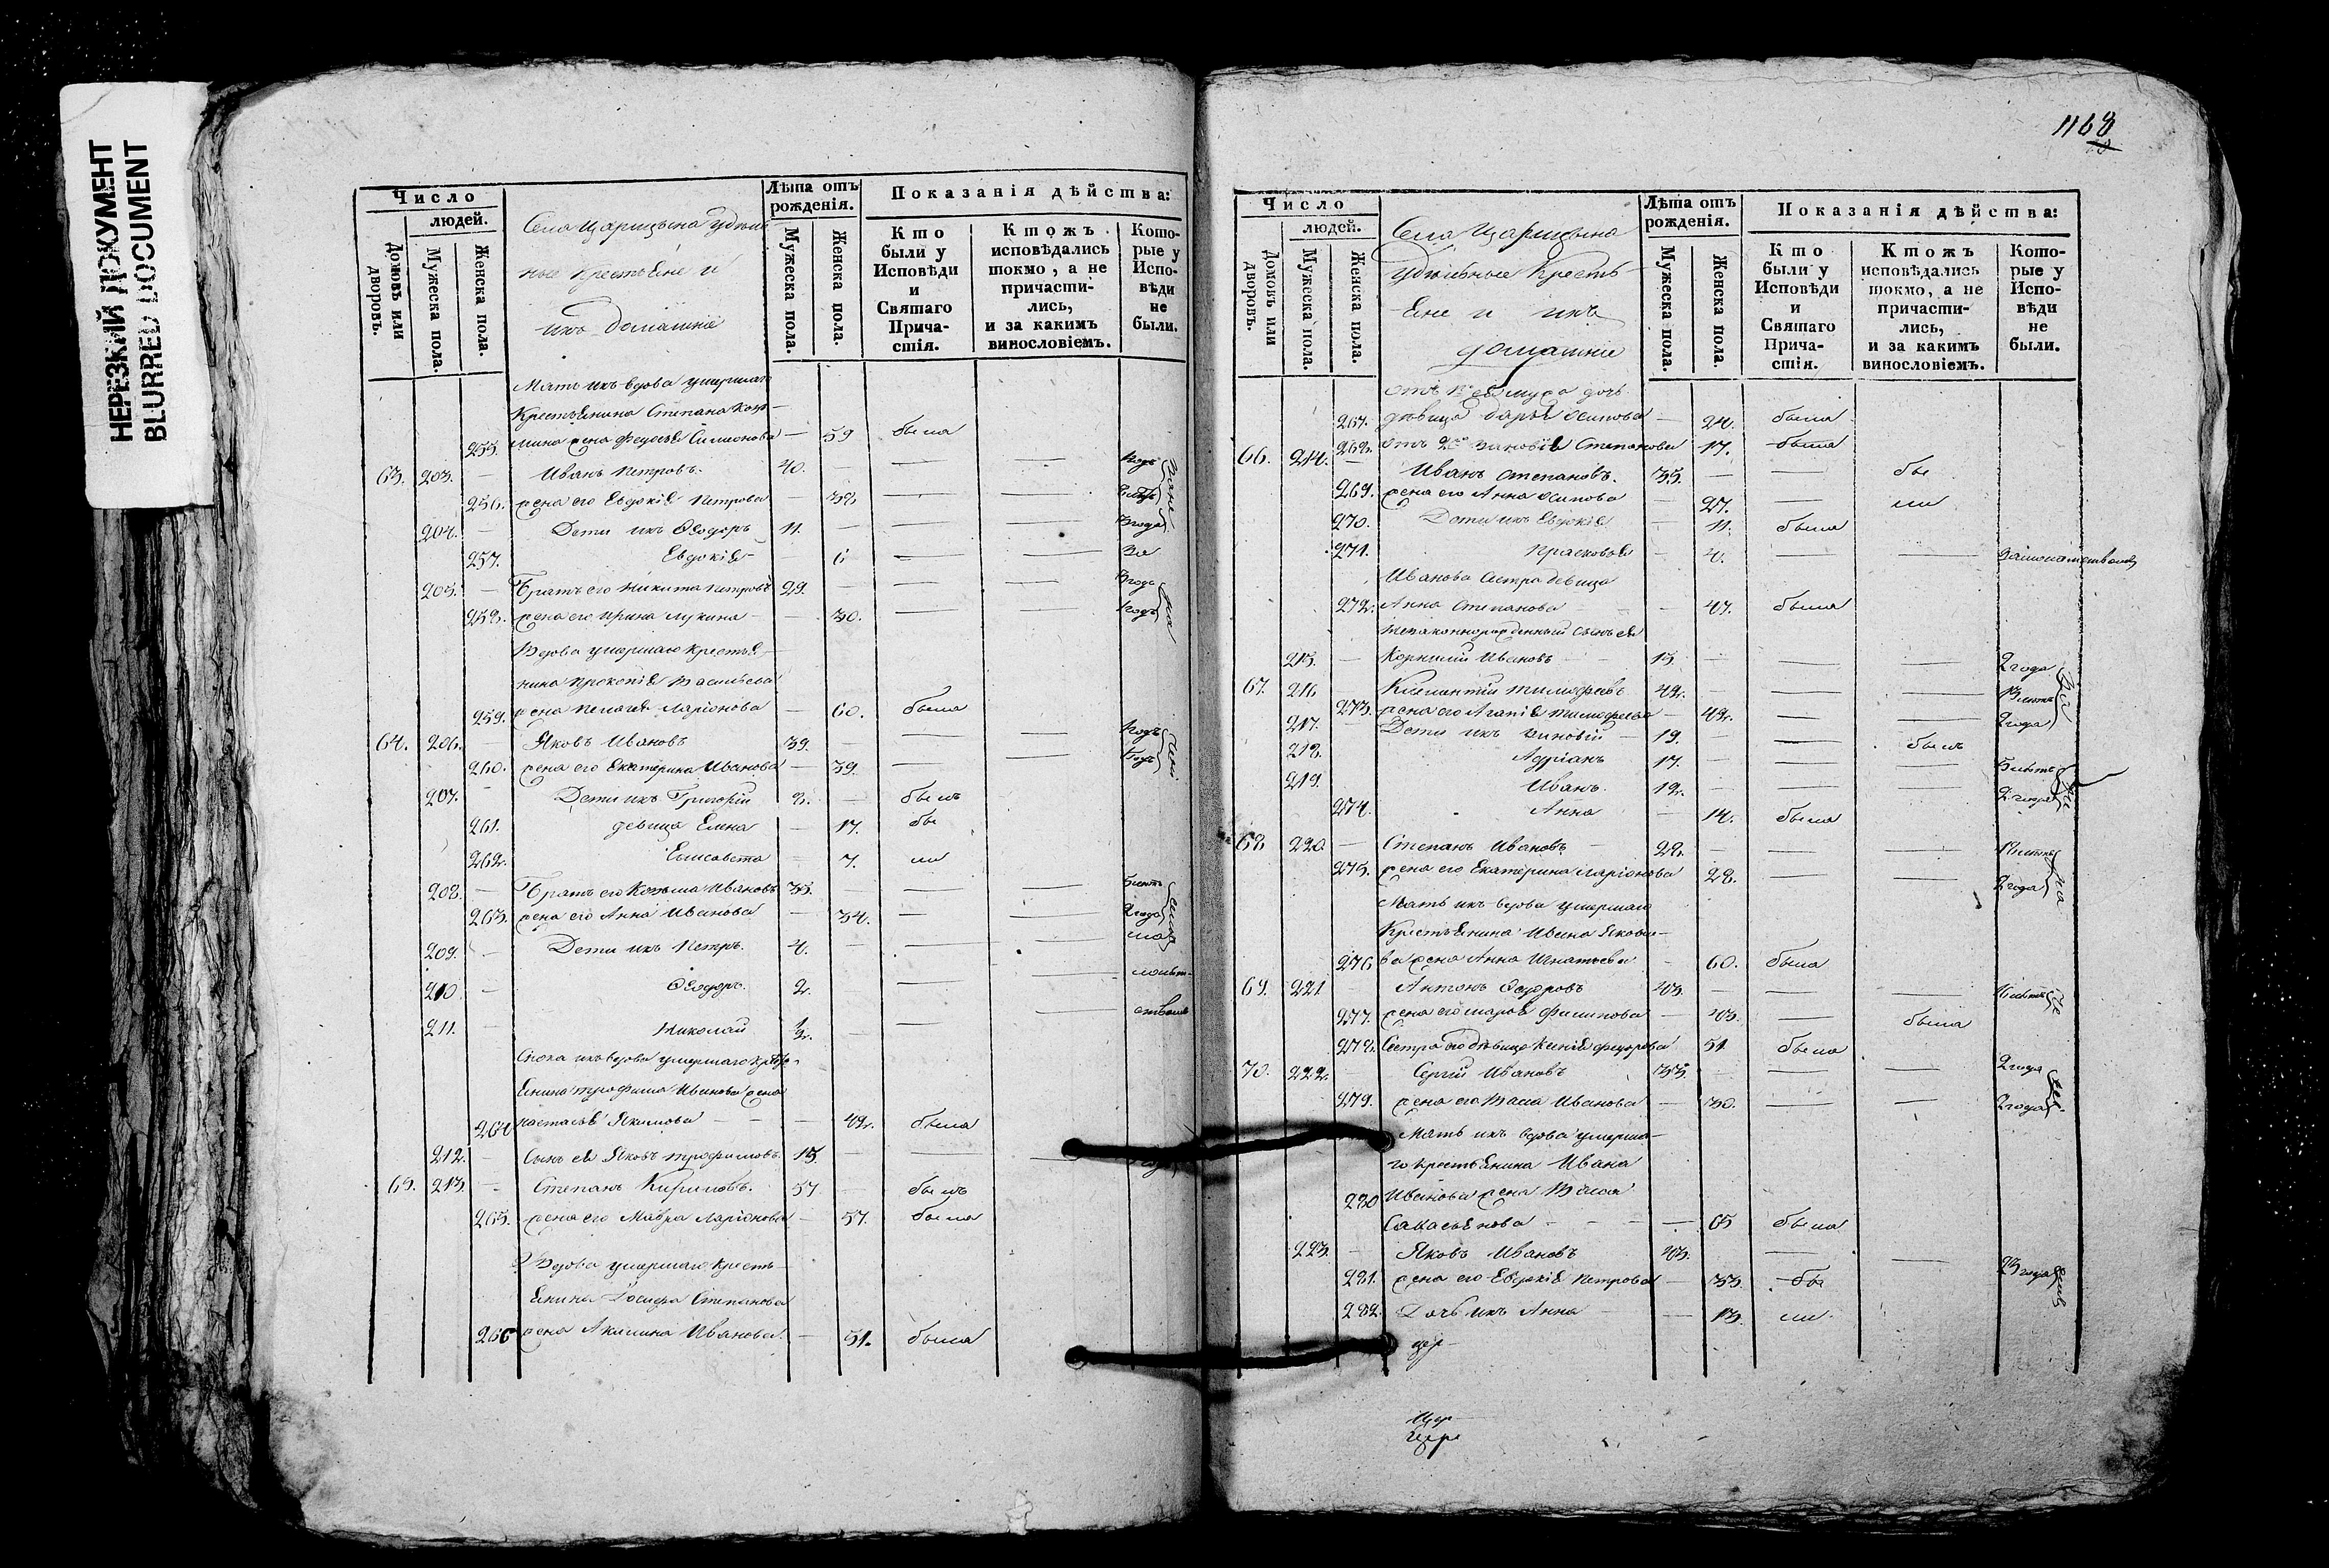 НЕРЕЗКИЙ ДОКУМЕНТ
BLURRED DOCUMENT
Число
людей.
Домовъ или дворовъ.
Мужеска пола.
Женска пола.
Села Царицына удѣль-
ные крестьяне и
ихъ домашніе
Лѣта отъ рожденія.
Мужеска пола.
Женска пола.
Показанія дѣйства:
Кто были у Исповѣди и Святаго Прича-стія.
Ктожъ исповѣдались токмо, а не причасти-лись, и за какимъ винословіемъ.
Кото-рые у Испо-вѣди не были.
Мать ихъ вдова умершаго
Крестьянина Степана
255. жена Федосья Симионова — 59 была
63. 203. — Иванъ Петровъ. 40. — — —
256. жена его Евдокія Петрова — 38 — —
204. — Дети их Ѳеодоръ 11. — — — 3 года
257. Евдокія — 6 — — За
205. — Братъ его Никита Петровъ 29. — — — 3 года
258. жена его Ирина Лукина — — 30. — — 1 годъ
Вдова умершаго крестья-
нина Прокопія Васильева
259. жена Пелагея Ларіонова — 60. была
64. 206. — Яковъ Ивановъ 39. — — — 1 годъ
260. жена его Екатерина Иванова — 39. — — 1 годъ
207. — Дети ихъ Григорій 8. — былъ
261. девица Елена — 17. бы
262. Елисавета — 7. ли
208. — Братъ его Козьма Ивановъ 35. — — — 5 летъ
263. жена его Анна Иванова — 34. — — 2 года
209. — Дети ихъ Петръ. 4. — — — ма
210 — Ѳеодоръ. 2. — — — лолет-
211. — Николай ½. — — — ствомъ
Сноха ихъ вдова умершаго крестьянина Трофима Иванова жена
264 Настасья Якимова — — — 48. была
212. — Сынъ ея Яковъ Трофимовъ. 15. — — —
65. 213. — Степанъ Кириловъ. 57 — былъ
265. жена его Мавра Ларіонова — 57. была
Вдова умершаго кресть-
янина Іосифа Степанова
266 жена Акилина Иванова. — 51. была
1168
Число
людей.
Домовъ или дворовъ.
Мужеска пола.
Женска пола.
Села Царицына
удѣльные Кресть-
яне и ихъ
домашніе
Лѣта отъ рожденія.
Мужеска пола.
Женска пола.
Показанія дѣйства:
Кто были у Исповѣди и Святаго Прича-стія.
Ктожъ исповѣдались токмо, а не причасти-лись, и за какимъ винословіемъ.
Кото-рые у Испо-вѣди не были.
отъ 1го ея мужа дочь
267. дѣвица Дарья Осипова — 24. была
268. отъ 2го Зиновія Степанова 17. была
66. 214. — Иванъ Степановъ. 35. — — бы
269. жена его Анна Осипова — 27. ли
270. Дети ихъ Евдокія — 11. была
271. Прасковья — 4. — за малолетствомъ
Иванова сестра девица
272. Анна Степанова — 47. была
Незаконнорожденный сынъ ея
215. — Корнилій Ивановъ 15 — — — 2 года
67. 216 — Климантій Тимофѣевъ 48. — — —
273. жена его Агапія Тимофеева — 48. — — 2 года
217. Дети ихъ Зиновій — 19. — — былъ
218. Адріанъ 17. — — — 5 летъ
219. Иванъ. 12. — — — 2 года
274. Анна — 14. была
68 220. — Степанъ Ивановъ — 28. — — —
275. жена его Екатерина Ларіонова 28. — — 2 года
Мать ихъ вдова умершаго
Крестьянина Ивана Яковле-
276 ва жена Анна Игнатьева — 60. была
69. 221 Антонъ Ѳедоровъ 43. — — —
277. жена его Марья Филипова — 43. — была
278. Сестра его дѣвица Ксенія Федорова 51 была
70. 222. — Сергій Ивановъ 35. — — — 2 года
279. жена его Васа Иванова — 30. — — 2 года
Мать ихъ вдова умерша-
го крестьянина Ивана
280 Иванова жена Васа
Савасьянова — — — — 65 была
223. — Яковъ Ивановъ 43. — —
281. жена его Евдокія Петрова — 33. бы
282. Дочь ихъ Анна — 13. ли
цер
Цер
Цере